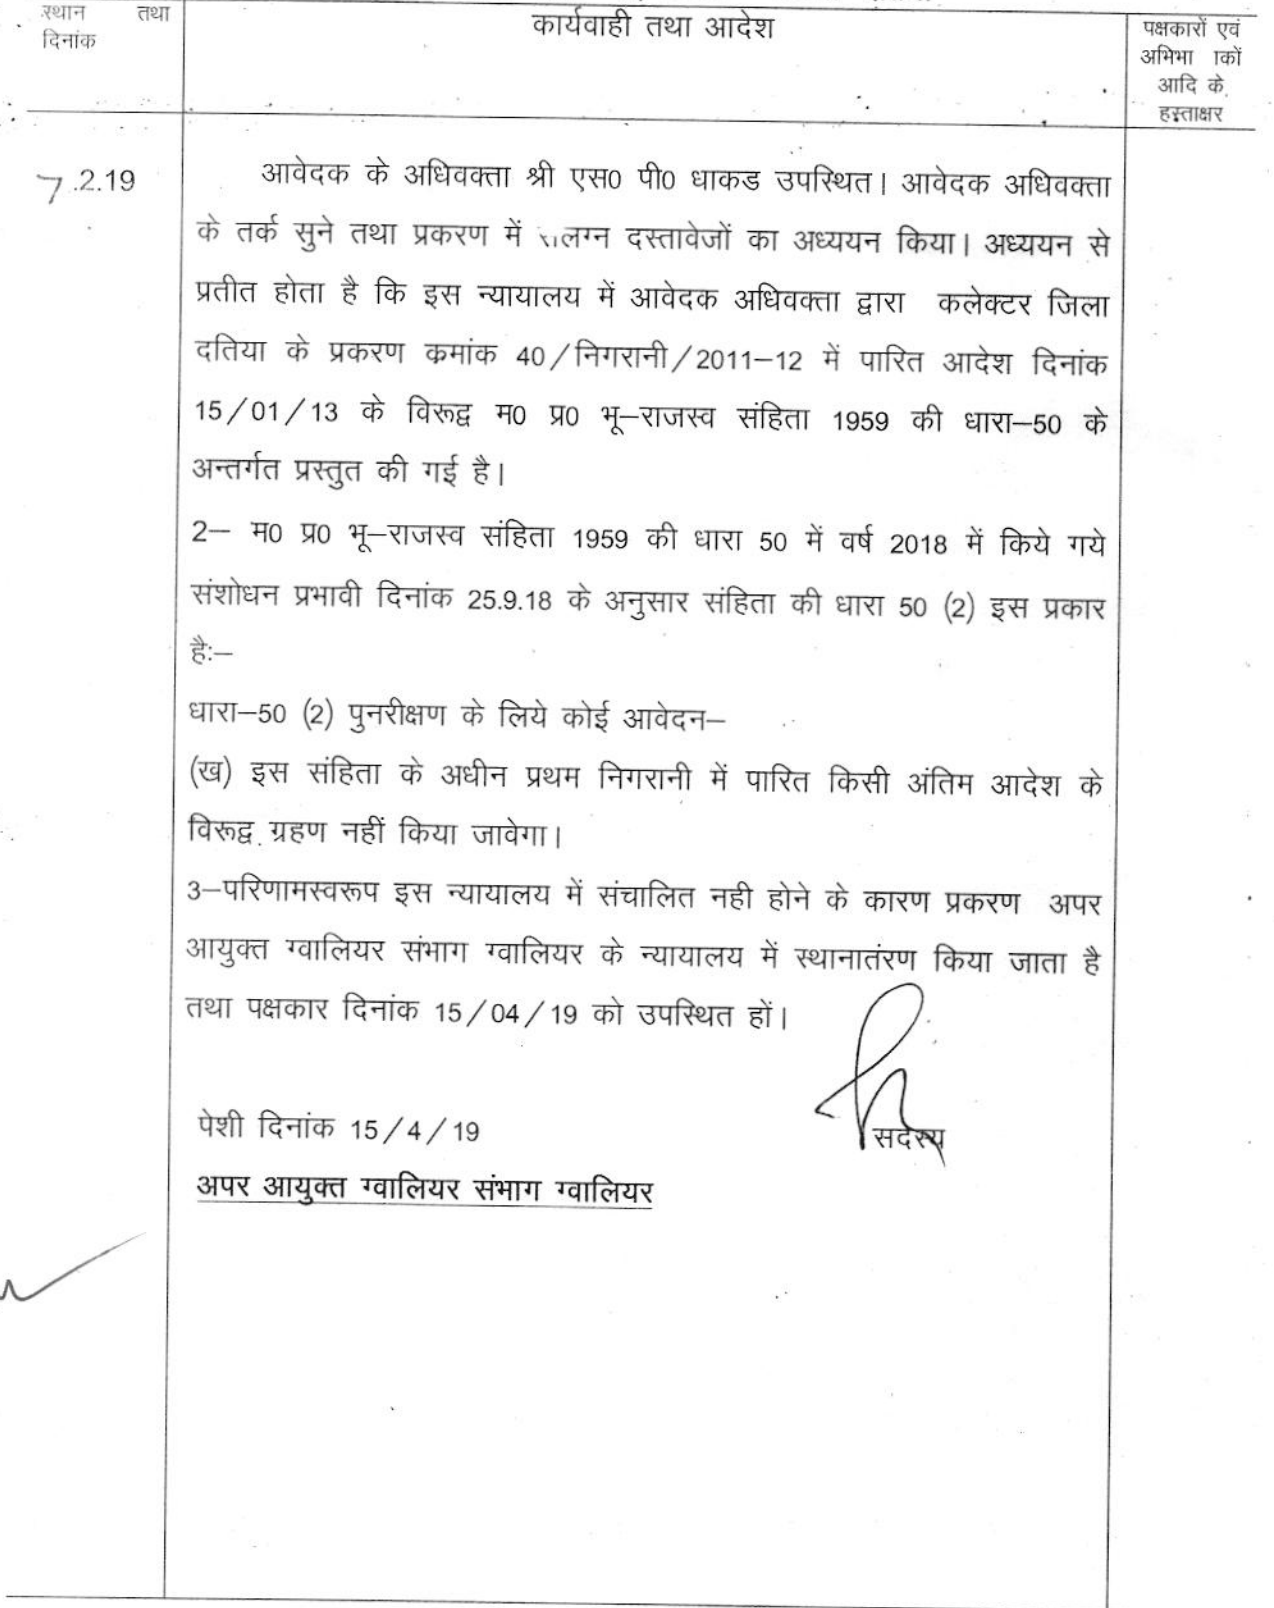 स्थान तथा
दिनांक
कार्यवाही तथा आदेश
पक्षकारों एवं
आदि के
हस्ताक्षर
7.2.19
आवेदक के अधिवक्ता श्री एस0 पी0 धाकड उपस्थित। आवेदक अधिवक्ता
के तर्क सुने तथा प्रकरण में दस्तावेजों का अध्ययन किया। अध्ययन से
प्रतीत होता है कि इस न्यायालय में आवेदक अधिवक्ता द्वारा कलेक्टर जिला
दतिया के प्रकरण कमांक 40/निगरानी/2011–12 में पारित आदेश दिनांक
15/01/13 के विरूद्व म0 प्र0 भू–राजस्व संहिता 1959 की धारा–50 के
अन्तर्गत प्रस्तुत की गई है।
2– म0 प्र0 भू–राजस्व संहिता 1959 की धारा 50 में वर्ष 2018 में किये गये
संशोधन प्रभावी दिनांक 25.9.18 के अनुसार संहिता की धारा 50 (2) इस प्रकार
है:–
धारा–50 (2) पुनरीक्षण के लिये कोई आवेदन–
(ख) इस संहिता के अधीन प्रथम निगरानी में पारित किसी अंतिम आदेश के
विरूद्व ग्रहण नहीं किया जावेगा।
3–परिणामस्वरूप इस न्यायालय में संचालित नही होने के कारण प्रकरण अपर
आयुक्त ग्वालियर संभाग ग्वालियर के न्यायालय में स्थानातंरण किया जाता है
तथा पक्षकार दिनांक 15/04/19 को उपस्थित हों।
सदस्य
पेशी दिनांक 15/4/19
अपर आयुक्त ग्वालियर संभाग ग्वालियर